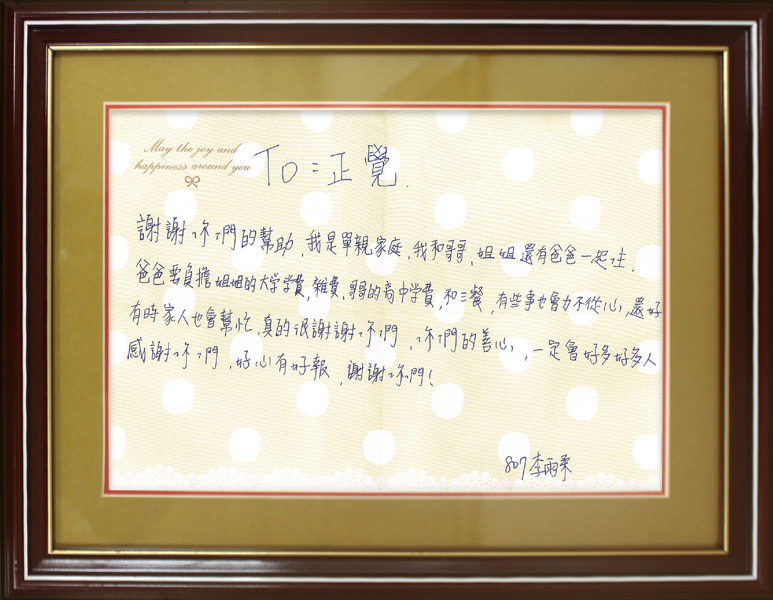 May the joy and
happiness around you
To=正覺.
謝謝你們的幫助,我是單親家庭,我和哥哥,姐姐還有爸爸一起住.
爸爸要負擔姐姐的大学学費,雜費,哥哥的高中学費,和三餐,有些事也會力不從心,還好
有時家人也會幫忙,真的很謝謝你們,你們的善心,一定會好多好多人
感謝你們,好心有好報,謝謝你們!
807李雨柔